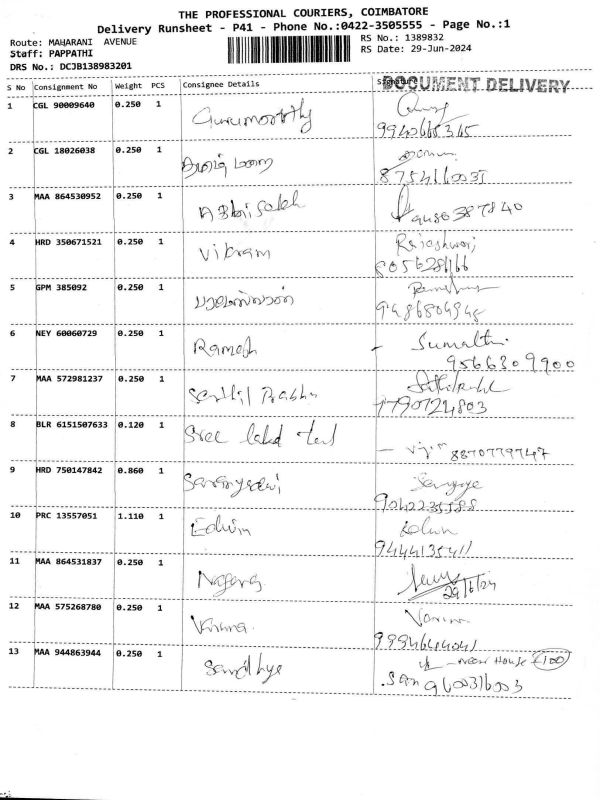 THE PROFESSIONAL COURIERS, COIMBATORE
Delivery Runsheet - P41 - Phone No.:0422-3505555 - Page No.:1
Route: MAHARANI AVENUE
RS No.: 1389832
Staff: PAPPATHI
RS Date: 29-Jun-2024
DRS No.: DCJB138983201
S No Consignment No Weight PCS Consignee Details Signature
DOCUMENT DELIVERY
1 CGL 90009640 0.250 1 Gurumoorthy
9940665365
2 CGL 18026038 0.250 1
3 MAA 864530952 0.250 1
4 HRD 350671521 0.250 1 Vikram Rajeshwari
8056281166
5 GPM 385092 0.250 1
9486804945
6 NEY 60060729 0.250 1 Ramesh - Sumathi
9566309900
7 MAA 572981237 0.250 1 Senthil Prabhu
7790724803
8 BLR 6151507633 0.120 1 Sree
8870779747
9 HRD 750147842 0.860 1 Saranyadevi
10 PRC 13557051 1.110 1 Edwin Edwin
9444135411
11 MAA 864531837 0.250 1 Nagaraj
29/6/24
12 MAA 575268780 0.250 1
13 MAA 944863944 0.250 1 Sandhya - New House £100
9600316003